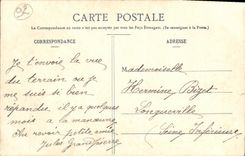 02
CARTE POSTALE
La Correspondance au recto n'est pas acceptée par tous les Pays Étrangers. (Se renseigner à la Poste.)
CORRESPONDANCE
ADRESSE
Je t'envoie la vue
du terrain ou je
me suis si bien
répandue il y a quelques
mois à la manœuvre
Au revoir petite amie
Jules
Mademoiselle
Hermine Bizet
Longueville
Seine Inférieure